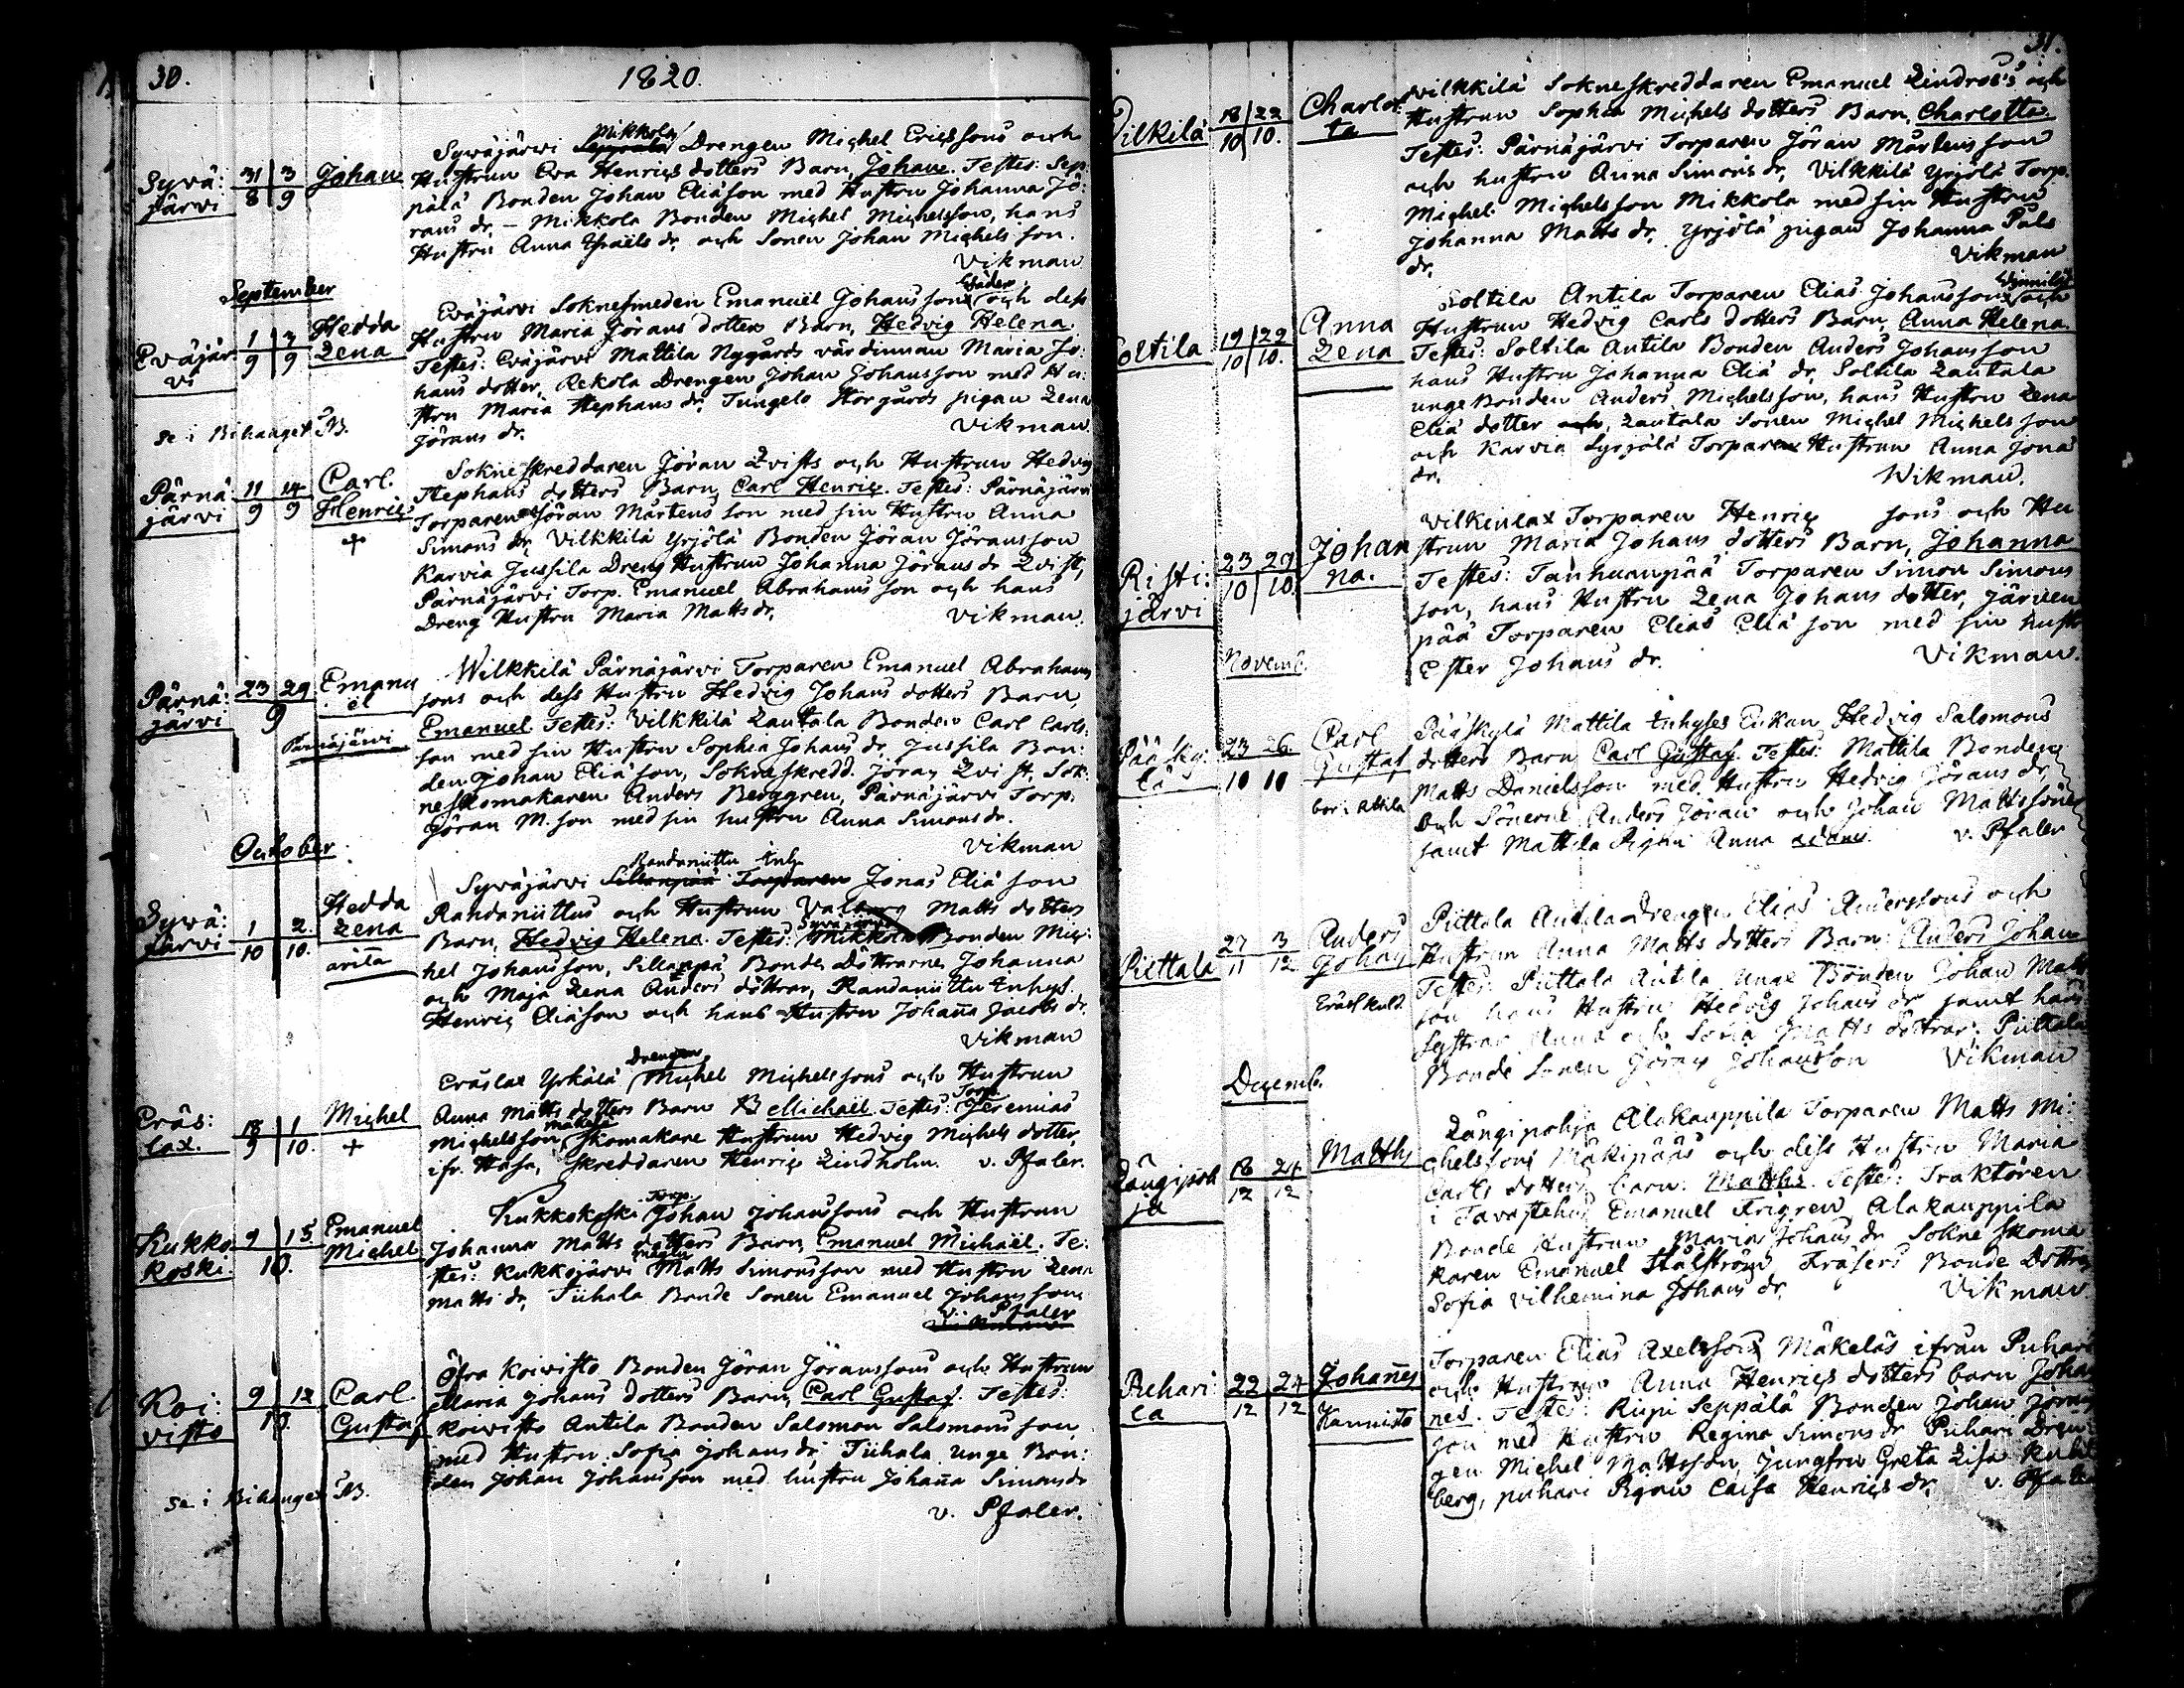 30.
1820.
Syvä: 31 3 Johan
järvi 8 9
Syväjärvi Seppälä Mikkola Drengen Michel Ericssons och
Hustrun Eva Henrics dotters Barn, Johan. Testes: Sep:
pälä Bonden Johan Eliäson med Hustru Johanna Jö:
rans dr. – Mikkola Bonden Michel Michelsson, hans
Hustru Anna Israëls dr. och Sonen Johan Michels son.
Vikman
September
Eväjär 1 3 Hedda
vi 9 9 Lena
Eväjärvi Soknesmeden Emanuël Johanssons Söder och dess
Hustrun Maria Jörans dotters Barn, Hedvig Helena.
Testes: Eväjärvi Mattila Nygårds värdinnan Maria Jo:
hans dotter, Rekola Drengen Johan Johansson med Hu:
stru Maria Stephans dr. Jungelo Storgårds pigan Lena
Jörans dr.
Vikman.
se i Bihanget NB.
Pärnä 11 14 Carl
järvi 9 9 Henric
+
Sokneskreddaren Jöran Qvists och Hustrun Hedvig
Stephans dotters Barn, Carl Henric. Testes: Pärnäjärvi
Torparen Jöran Mårtens son med sin Hustru Anna
Simons dr, Vilkkilä Yrjölä Bonden Jöran Jöransson
Karvia Jussila Dreng Hustrun Johanna Jörans dr Qvist,
Pärnäjärvi Torp. Emanuel Abrahams son och hans
Dreng Hustru Maria Matts dr.
Vikman.
Pärnä: 23 29 Emanu
järvi 9 el
Pärnäjärvi
Wilkkilä Pärnäjärvi Torparen Emanuel Abrahams
sons och dess Hustru Hedvig Johans dotters Barn,
Emanuel. Testes: Vilkkilä Lautala Bonden Carl Carls:
son med sin Hustru Sophia Johans dr. Jussila Bon:
den Johan Eliä son, Sokneskredd. Jöran Qvist, Sok:
neskomakaren Anders Berggren, Pärnäjärvi Torp.
Jöran M. son med sin hustru Anna Simons dr.
Vikman
October
Syvä: 1 2. Hedda
järvi 10 10. Lena
Syväjärvi Sillanpää Torparen Randaniittu Inh. Jonas Eliä son
Randaniittus och Hustrun Valborg Matts dotters
Barn, Hedvig Helena. Testes: Syväjärvi Mikkola Bonden Mic:
hel Johansson, Sillanpä Bonde Döttrarne Johanna
och Maja Lena Anders döttrar, Randaniittu Inhys.
Henric Eliäson och hans Hustru Johanna Jacobs dr.
Vikman
Eräs: 18 1 Michel
lax. 9 10. +
Eräslax Yrkälä Drengen Michel Michelssons och Hustrun
Anna Matts dotters Barn Michaël. Testes: Torp. Jeremias
Michelsson, Mäkelä Skomakare Hustrun Hedvig Michels dotter,
ifr. Wasa, Skreddaren Henric Lindholm. v. Pfaler.
Kukko 9 15 Emanuel
koski. 10. Michel
Kukkokoski Torp. Johan Johanssons och Hustrun
Johanna Matts dotters Barn, Emanuel Michaël. Te:
stes: Kukkojärvi Matts Simonsson med Hustru Lena
Matts dr, Tuhala Bonde Sonen Emanuel Johansson.
v. Pfaler
Vikman
Koi: 9 12 Carl
visto 10. Gustaf
Öfra Koivisto Bonden Jöran Jöranssons och Hustrun
Maria Johans dotters Barn, Carl Gustaf. Testes:
Koivisto Antila Bonden Salomon Salomons son,
med Hustru Sofia Johans dr. Tuhala unge Bon:
den Johan Johansson med hustru Johanna Simons dr
v. Pfaler.
se i Bihanget NB.
31.
Vilkilä 18 22 Charlot:
10 10. ta
Vilkkilä Sokneskreddaren Emanuel Lindros's och
Hustrun Sophia Michels dotters Barn, Charlotta.
Testes: Pärnäjärvi Torparen Jöran Mårtensson
och hustru Anna Simons dr, Vilkkilä Yrjölä Torp.
Michel Michelsson Mikkola med sin Hustru
Johanna Matts dr, Yrjölä pigan Johanna Påls
dr.
Vikman
Soltila 19 29 Anna
10 10. Lena
Soltila Antila Torparen Elias Johanssons och
Hustrun Hedvig Carls dotters Barn, Anna Helena.
Testes: Soltila Antila Bonden Anders Johansson
hans Hustru Johanna Eliä dr, Soltila Lautala
unge Bonden Anders Michelsson, hans Hustru Lena
Eliä dotter och, Lautala Sonen Michel Michels son
och Karvia Syrjälä Torparen Hustrun Anna Jona
dr.
Wikman.
Risti: 23 29 Johan
järvi 10 10. na.
Vilkinlax Torparen Henric sons och Hu
strun Maria Johans dotters Barn, Johanna
Testes: Tanhuanpää Torparen Simon Simons
son, hans Hustru Lena Johans dotter, Järven
pää Torparen Elias Eliä son med sin hustr
Ester Johans dr.
Vikman.
Novemb.
Pääsky: 23 26 Carl
lä 10 10 Gustaf
bor i Attila
Pääskylä Mattila Inhyses Enkan Hedvig Salomons
dotters Barn Carl Gustaf. Testes: Mattila Bonden
Matts Danielsson med Hustru Hedvig Jörans dr,
Och Sönerne Anders Jöran och Johan Matts söner
samt Mattila Pigan Anna
v. Pfaler
Piettala 27 3 Anders
11 12 Johan
Piittala Antila Drengen Elias Anderssons och
Hustrun Anna Matts dotters Barn: Anders Johan
Testes: Piittala Antila Unge Bonden Johan Matts
son hans Hustru Hedvig Johans dr samt hans
Systrar Anna och Sofia Matts döttrar, Piittala
Bonde Sonen Jöran Johansson Vikman
Decemb.
Längipoh 18 24 Matths
ja 12 12
Längipohja Alakauppila Torparen Matts Mi:
chelssons Mäkipääs och dess Hustru Maria
Carls dotters barn: Matths. Testes: Traktören
i Tavastehus Emanuel Frigren, Alakauppila
Bonde Hustrun Maria Johans dr Sokne skoma
karen Emanuel Stålström, Fräsers Bonde Dottren
Sofia Vilhemina Johans dr.
Vikman.
Puhari: 22 24 Johanes
la 12 12 Kannisto
Torparen Elias Axelssons Mäkeläs ifrån Puhari
och Hustrun Anna Henrics dotters barn Johan
nes. Testes: Riipi Seppälä Bonden Johan Jörans
son med Hustru Regina Simons dr Puhari Dren:
gen Michel Mattsson, Jungfru Greta Lisa
berg, puhari Pigan Caisa Henrics dr. v. Pfaler